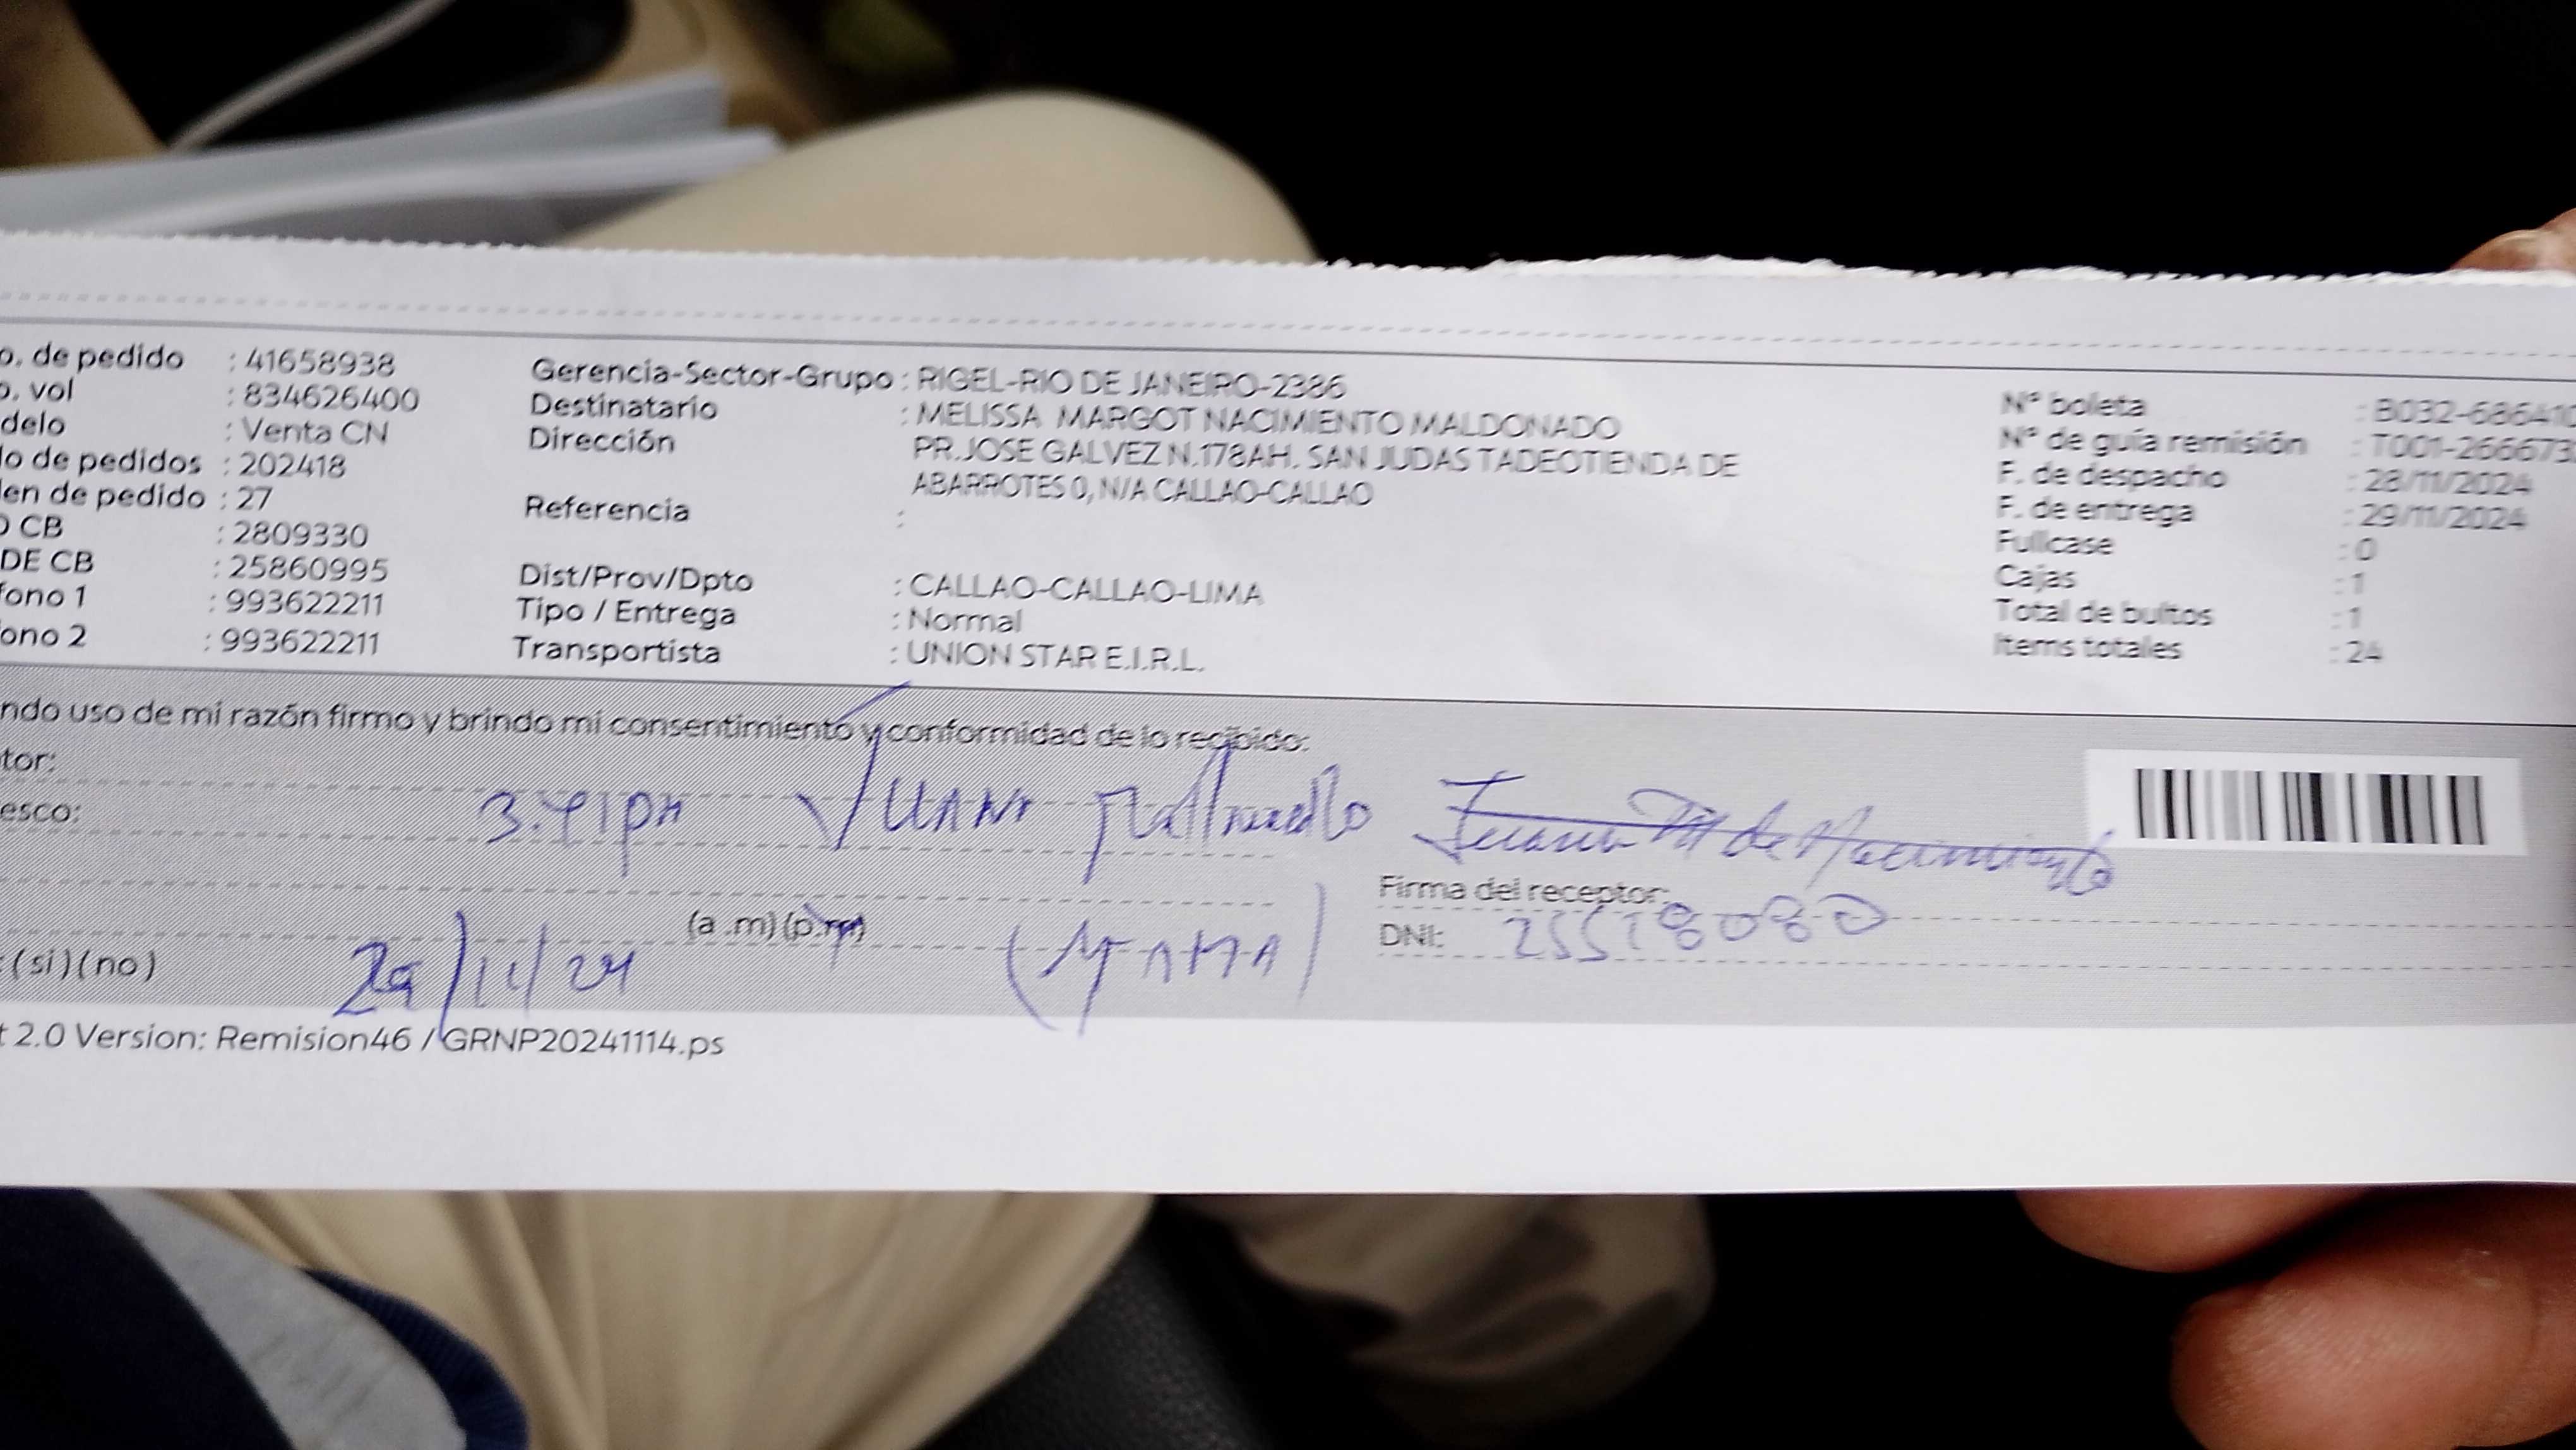 o. de pedido : 41658938
o. vol : 834626400
delo : Venta CN
lo de pedidos : 202418
en de pedido : 27
O CB : 2809330
DE CB : 25860995
fono 1 : 993622211
ono 2 : 993622211
Gerencia-Sector-Grupo : RIGEL-RIO DE JANEIRO-2386
Destinatario : MELISSA MARGOT NACIMIENTO MALDONADO
Dirección PR.JOSE GALVEZ N.178AH. SAN JUDAS TADEOTIENDA DE
ABARROTES 0, N/A CALLAO-CALLAO
Referencia :
Dist/Prov/Dpto : CALLAO-CALLAO-LIMA
Tipo / Entrega : Normal
Transportista : UNION STAR E.I.R.L.
Nº boleta : B032-686410
Nº de guía remisión : T001-266673
F. de despacho : 28/11/2024
F. de entrega : 29/11/2024
Fullcase : 0
Cajas : 1
Total de bultos : 1
Items totales : 24
ndo uso de mi razón firmo y brindo mi consentimiento y conformidad de lo recibido:
tor:
esco:
Juana M de Nacimiento
Firma del receptor:
(a .m) (p.m)
DNI: 25518080
: (si) (no) 29/11/24
t 2.0 Version: Remision46 / GRNP20241114.ps